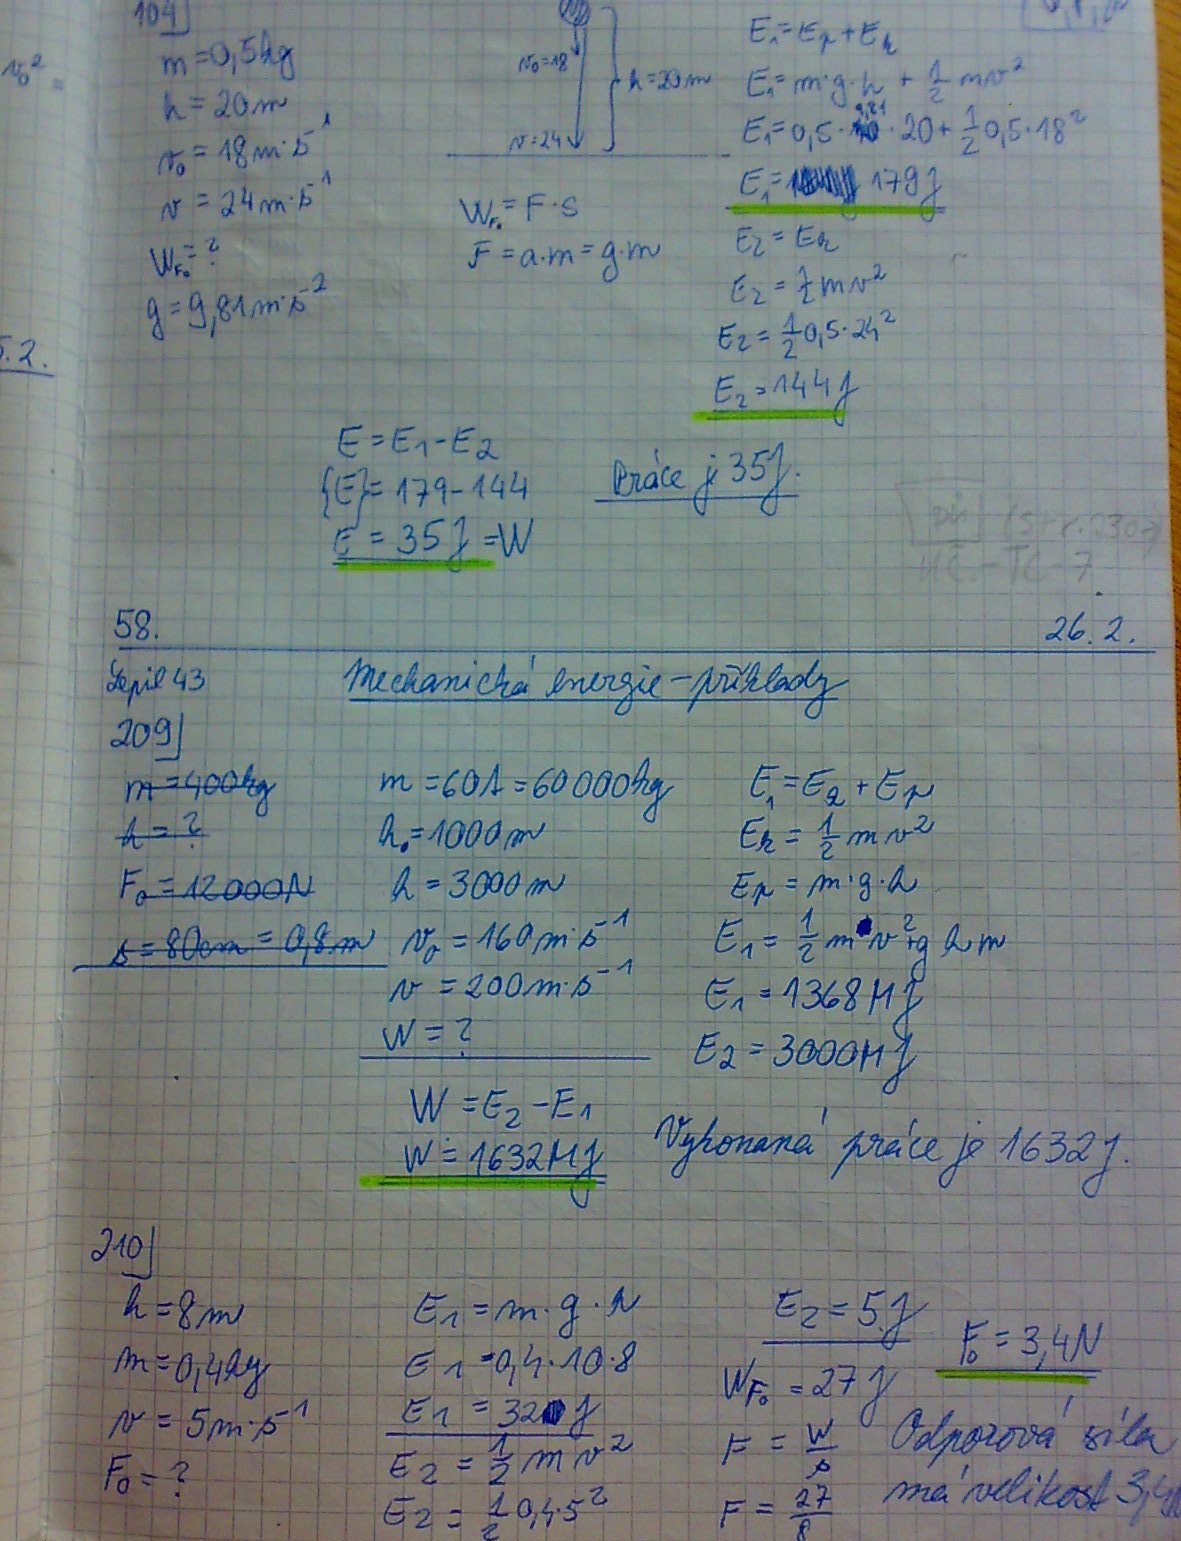 104
m=0,5kg
h=20m
v₀=18m·s⁻¹
v=24m·s⁻¹
W_F₀=?
g=9,81m·s⁻²
v₀²=
5.2.
v₀=18
h=20m
v=24
W_F₀=F·s
F=a·m=g·m
E₁=Ep+Ek
E₁=m·g·h+½mv²
E₁=0,5·9,81·20+½0,5·18²
E₁=179J
E₂=Ek
E₂=½mv²
E₂=½0,5·24²
E₂=144J
E=E₁-E₂
{E}=179-144
E=35J=W
Práce je 35J.
DÚ (str.230)
UČ.-TC-7
58.
26.2.
Lepil 43
Mechanická energie-příklady
209
m=400kg
h=?
F₀=12000N
s=80cm=0,8m
m=60t=60000kg
h₀=1000m
h=3000m
v₀=160m·s⁻¹
v=200m·s⁻¹
W=?
W=E₂-E₁
W=1632MJ
E₁=Ek+Ep
Ek=½mv²
Ep=m·g·h
E₁=½mv²+ghm
E₁=1368MJ
E₂=3000MJ
Vykonaná práce je 1632J.
210
h=8m
m=0,4kg
v=5m·s⁻¹
F₀=?
E₁=m·g·h
E₁=0,4·10·8
E₁=32J
E₂=½mv²
E₂=½0,4·5²
E₂=5J
W_F₀=27J
F=W/s
F=27/8
F₀=3,4N
Odporová síla
má velikost 3,4N